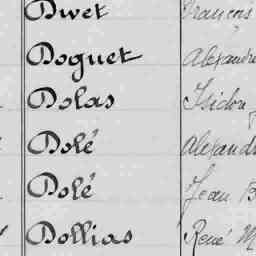 Divet François
Doguet Alexandre
Dolas Isidore
Dolé Alexandre
Dolé Jean B
Dollias René M